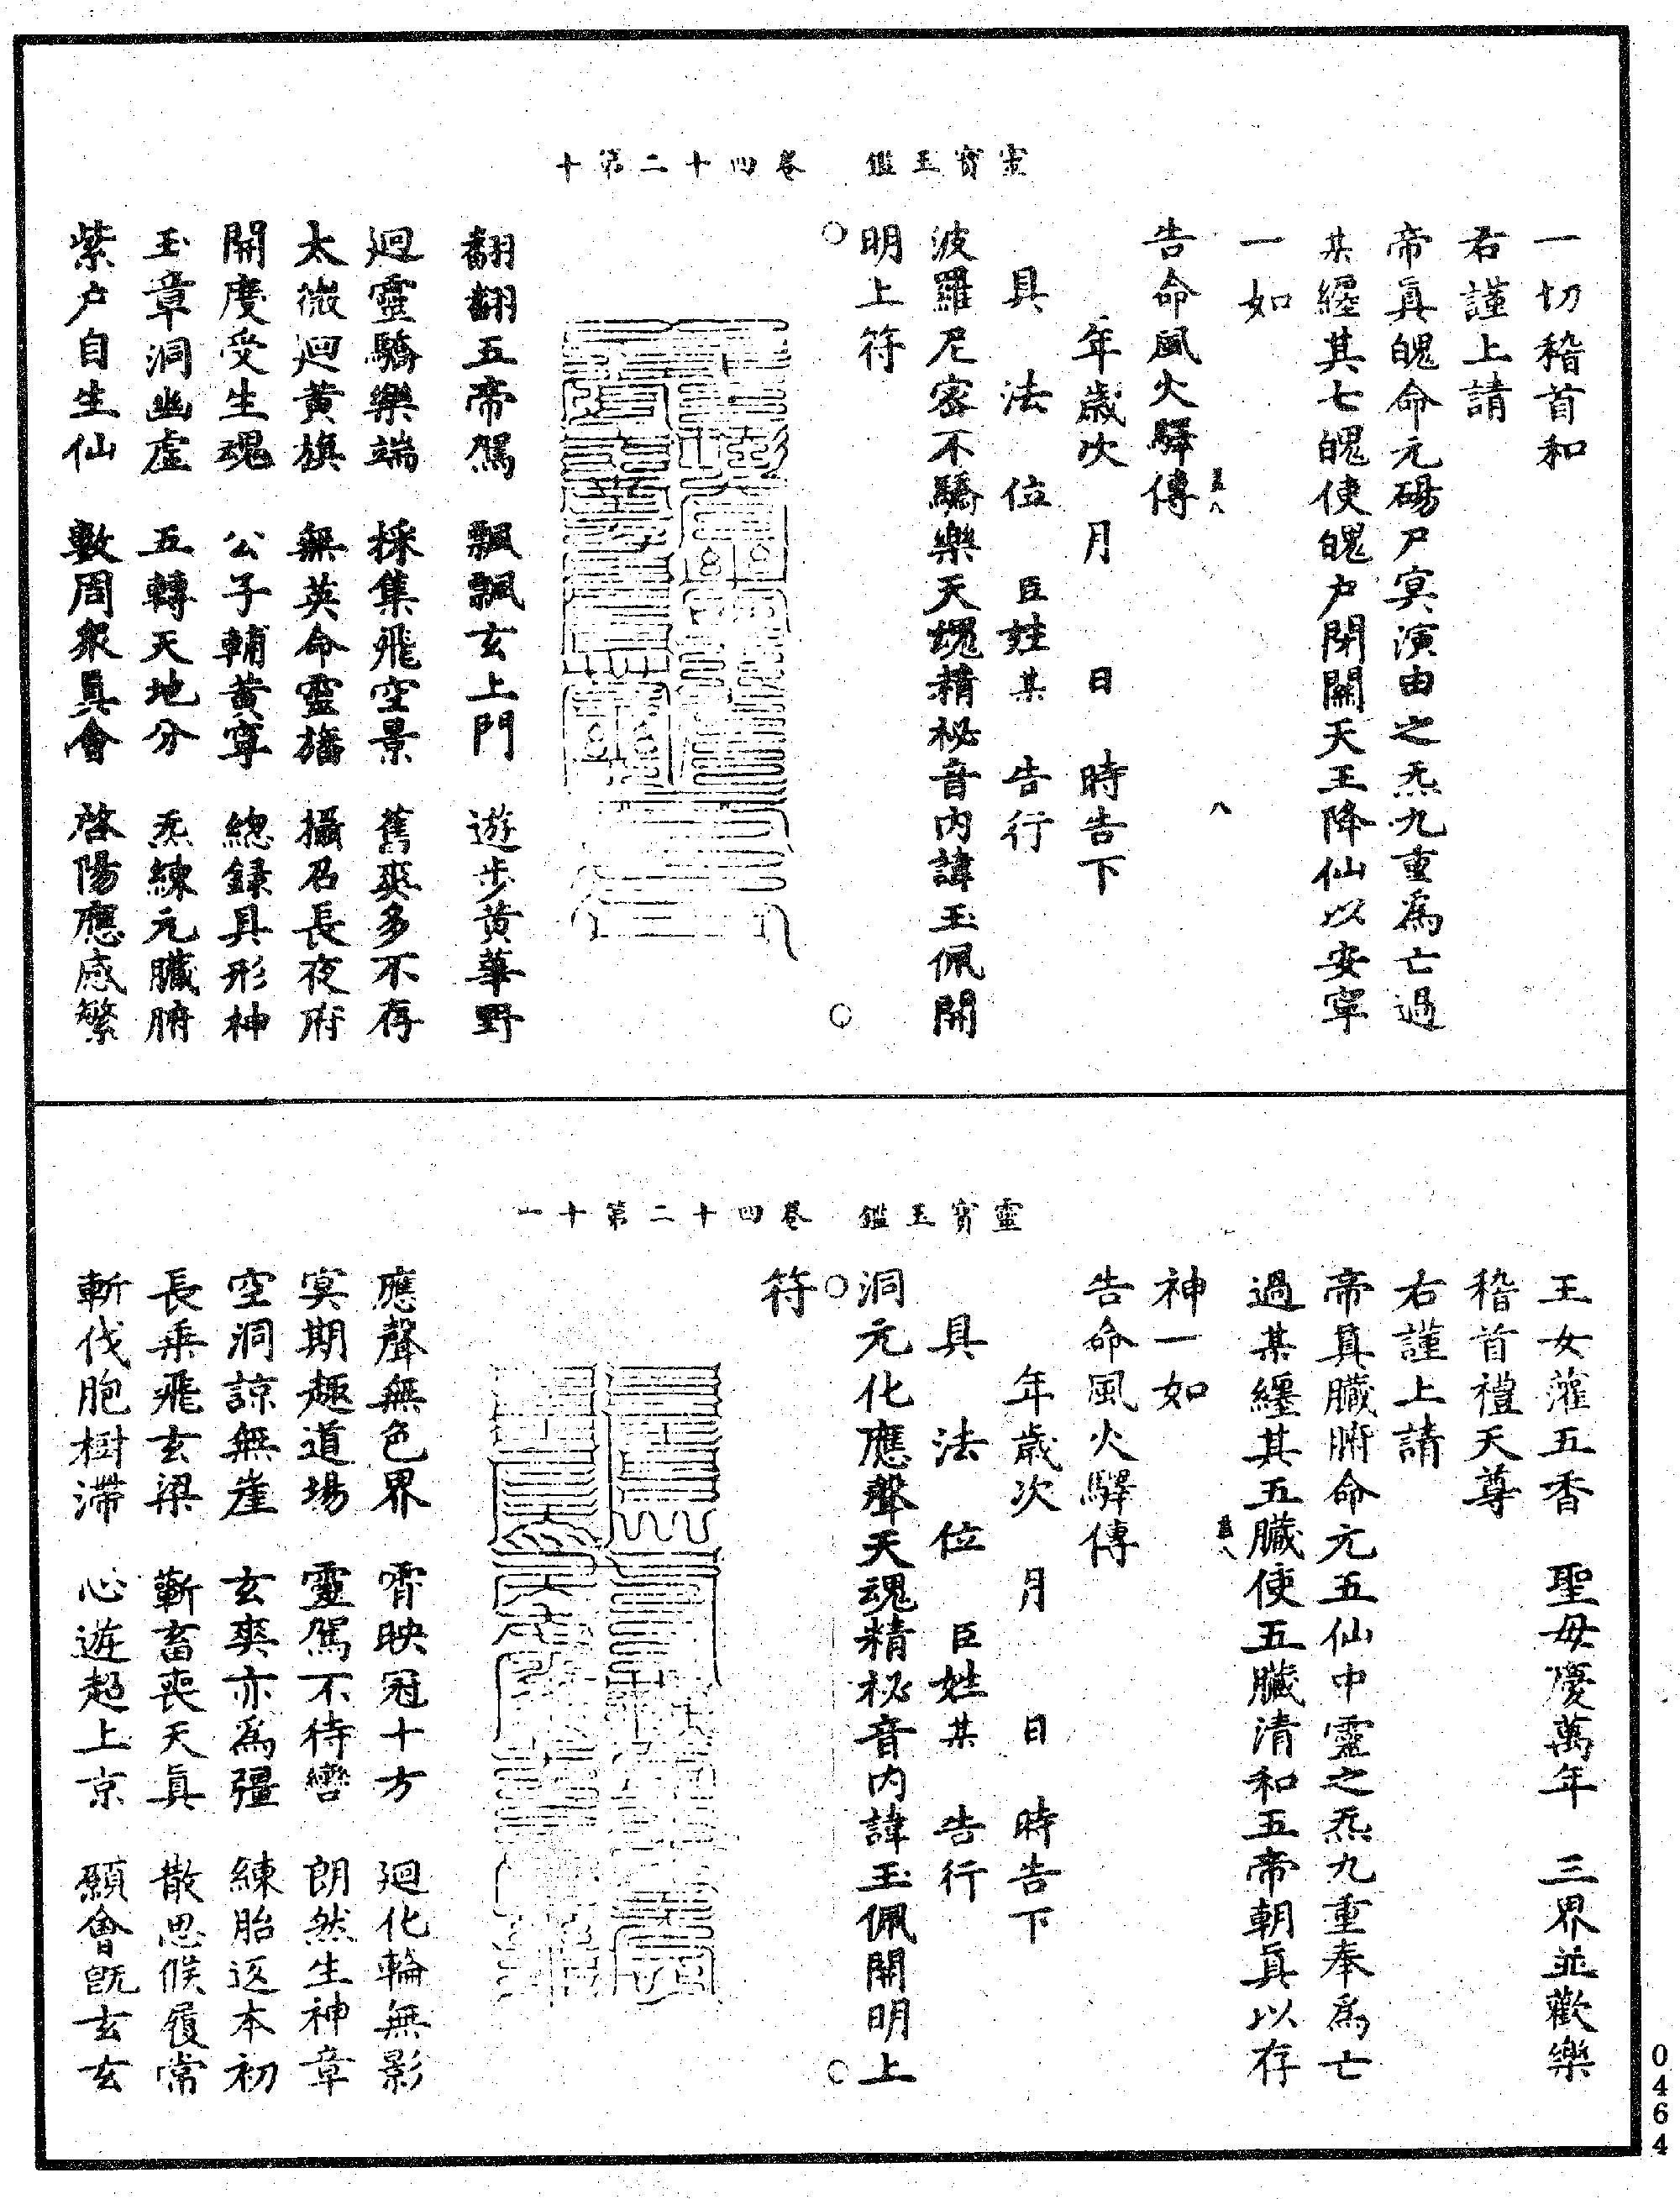 靈寶玉鑑 卷四十二第十
一切稽首和
右謹上請
帝真魄命元碭尸冥演由之炁九重爲亡過
某纏其七魄使魄户閉關天王降仙以安寧
一如
告命風火驛傳
年歲次 月 日 時告下
具 法 位 臣姓某 告行
波羅尼密不驕樂天魂精秘音内諱玉佩開
明上符
翻翻五帝駕 飄飄玄上門 遊步黄華野
迴靈驕樂端 採集飛空景 舊爽多不存
太微迴黄旗 無英命靈旛 攝召長夜府
開度受生魂 公子輔黄寧 總録具形神
玉章洞幽虚 五轉天地分 炁練元臟腑
紫户自生仙 數周衆真會 啓陽應感繁
八
靈寶玉鑑 卷四十二第十一
王女灌五香 聖母慶萬年 三界並歡樂
稽首禮天尊
右謹上請
帝真臟腑命元五仙中靈之炁九重奉爲亡
過某纏其五臟使五臟清和五帝朝真以存
神一如
告命風火驛傳
年歲次 月 日 時告下
具 法 位 臣姓某 告行
洞元化應聲天魂精秘音内諱玉佩開明上
符
應聲無色界 霄映冠十方 迴化輪無影
冥期趣道場 靈駕不待轡 朗然生神章
空洞諒無崖 玄爽亦爲彊 練胎返本初
長乘飛玄梁 蘄畜喪天真 散思候履常
斬伐胞樹滯 心遊超上京 願會既玄玄
0464